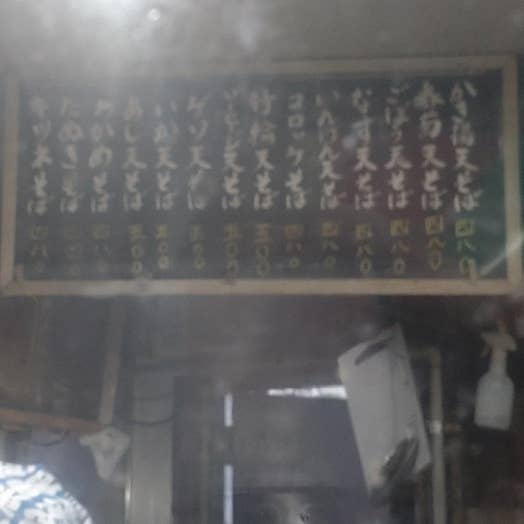 かき揚天そば 四八〇
春菊天そば 四八〇
ごぼう天そば 四八〇
なす天そば 四八〇
いんげん天そば 四八〇
コロッケそば 四八〇
竹輪天そば 五〇〇
天そば 五〇〇
ゲソ天そば 五〇〇
いか天そば 五〇〇
あじ天そば 五〇〇
わかめそば 四八〇
たぬきそば
そば 四八〇